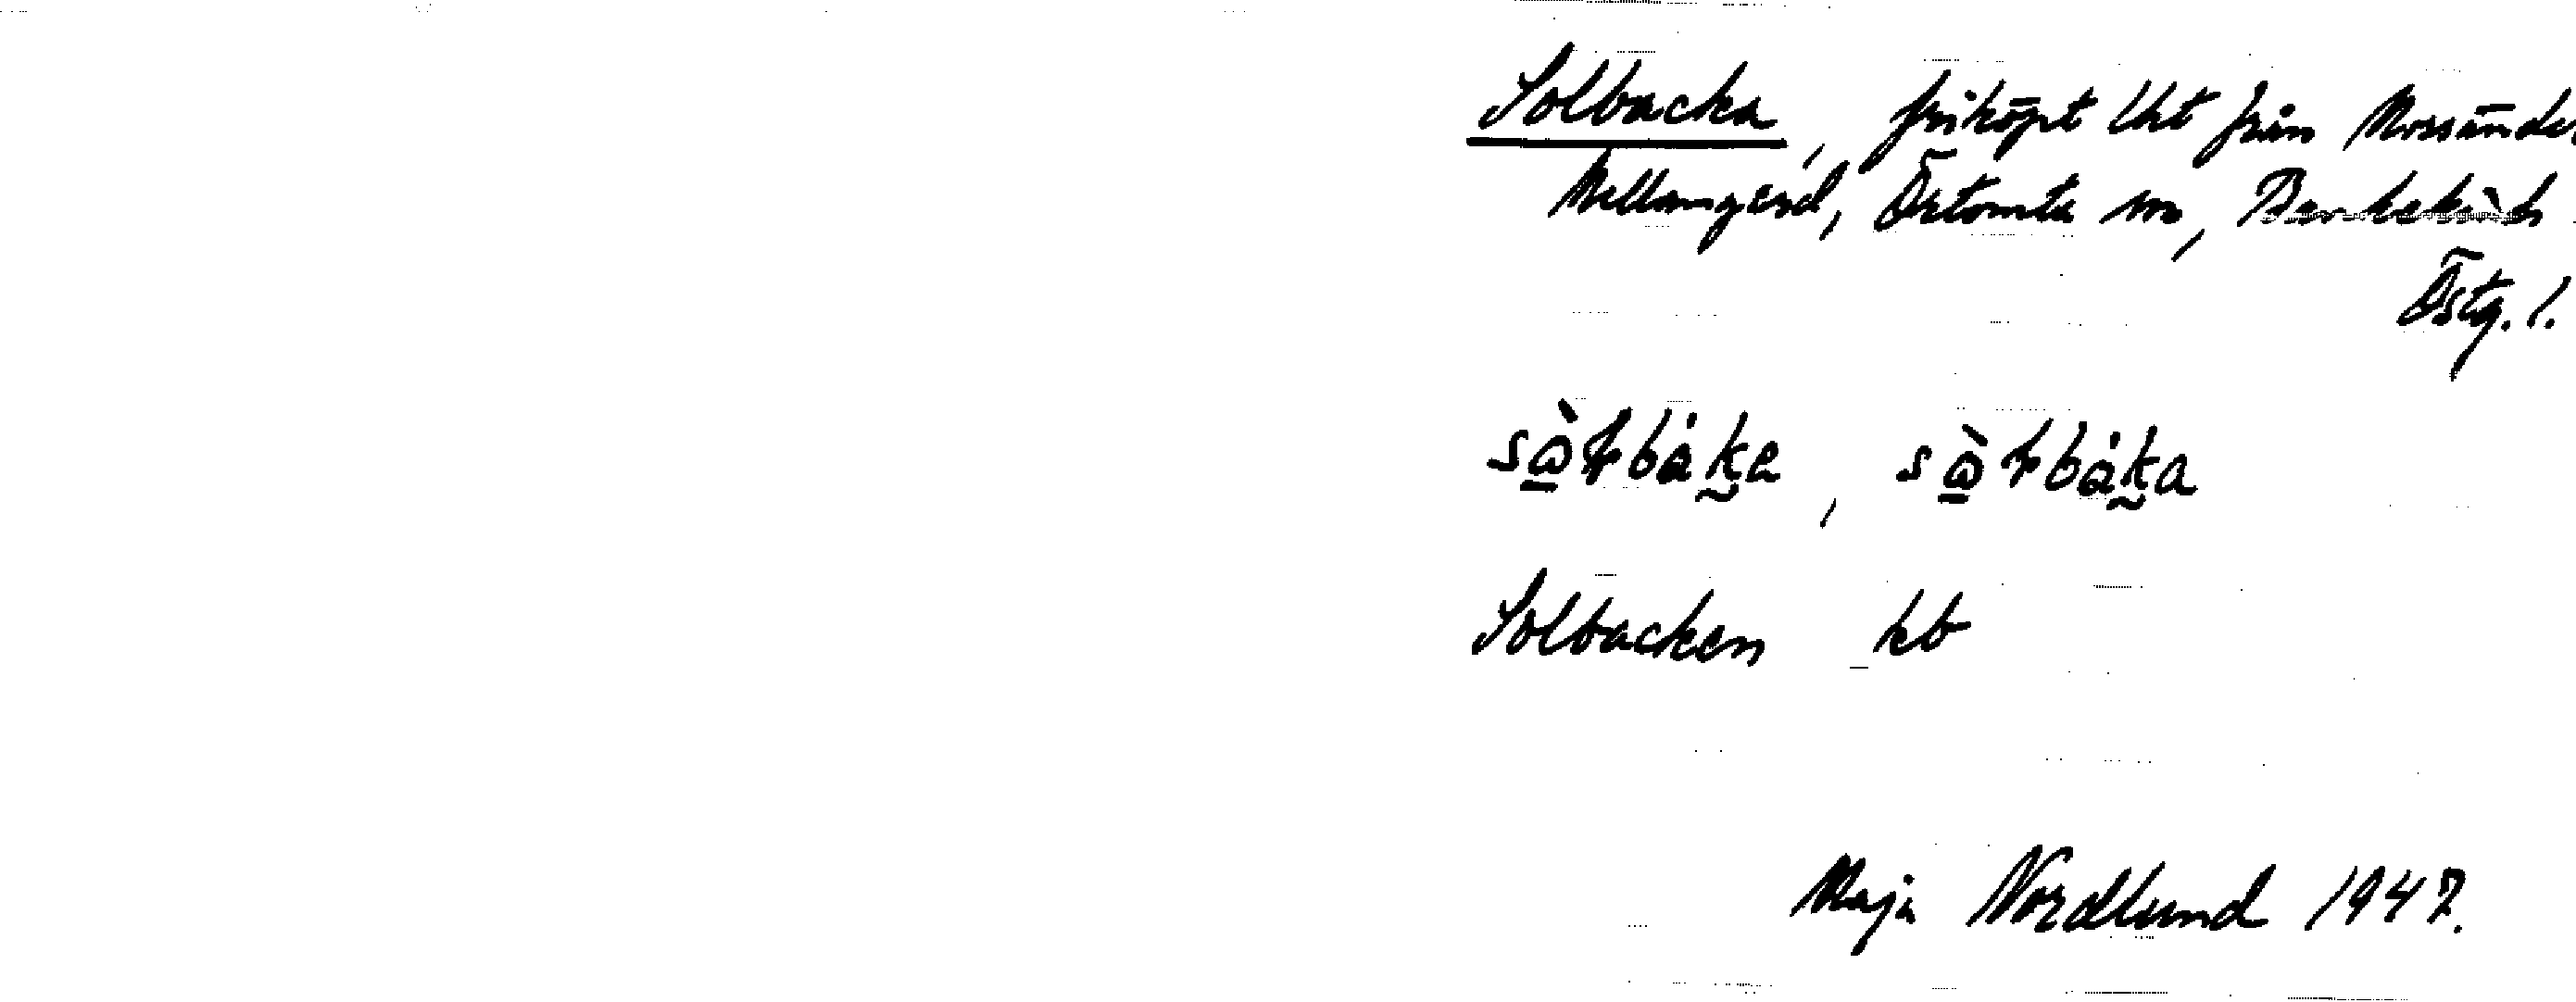 Solbacka, friköpt lht från Mossände
Mellangård, Örtomta sn, Bankekinds
Östg. l.
sàɷłbáka, sàɷłbáka
Solbacken kb
Maja Nordlund 1947.